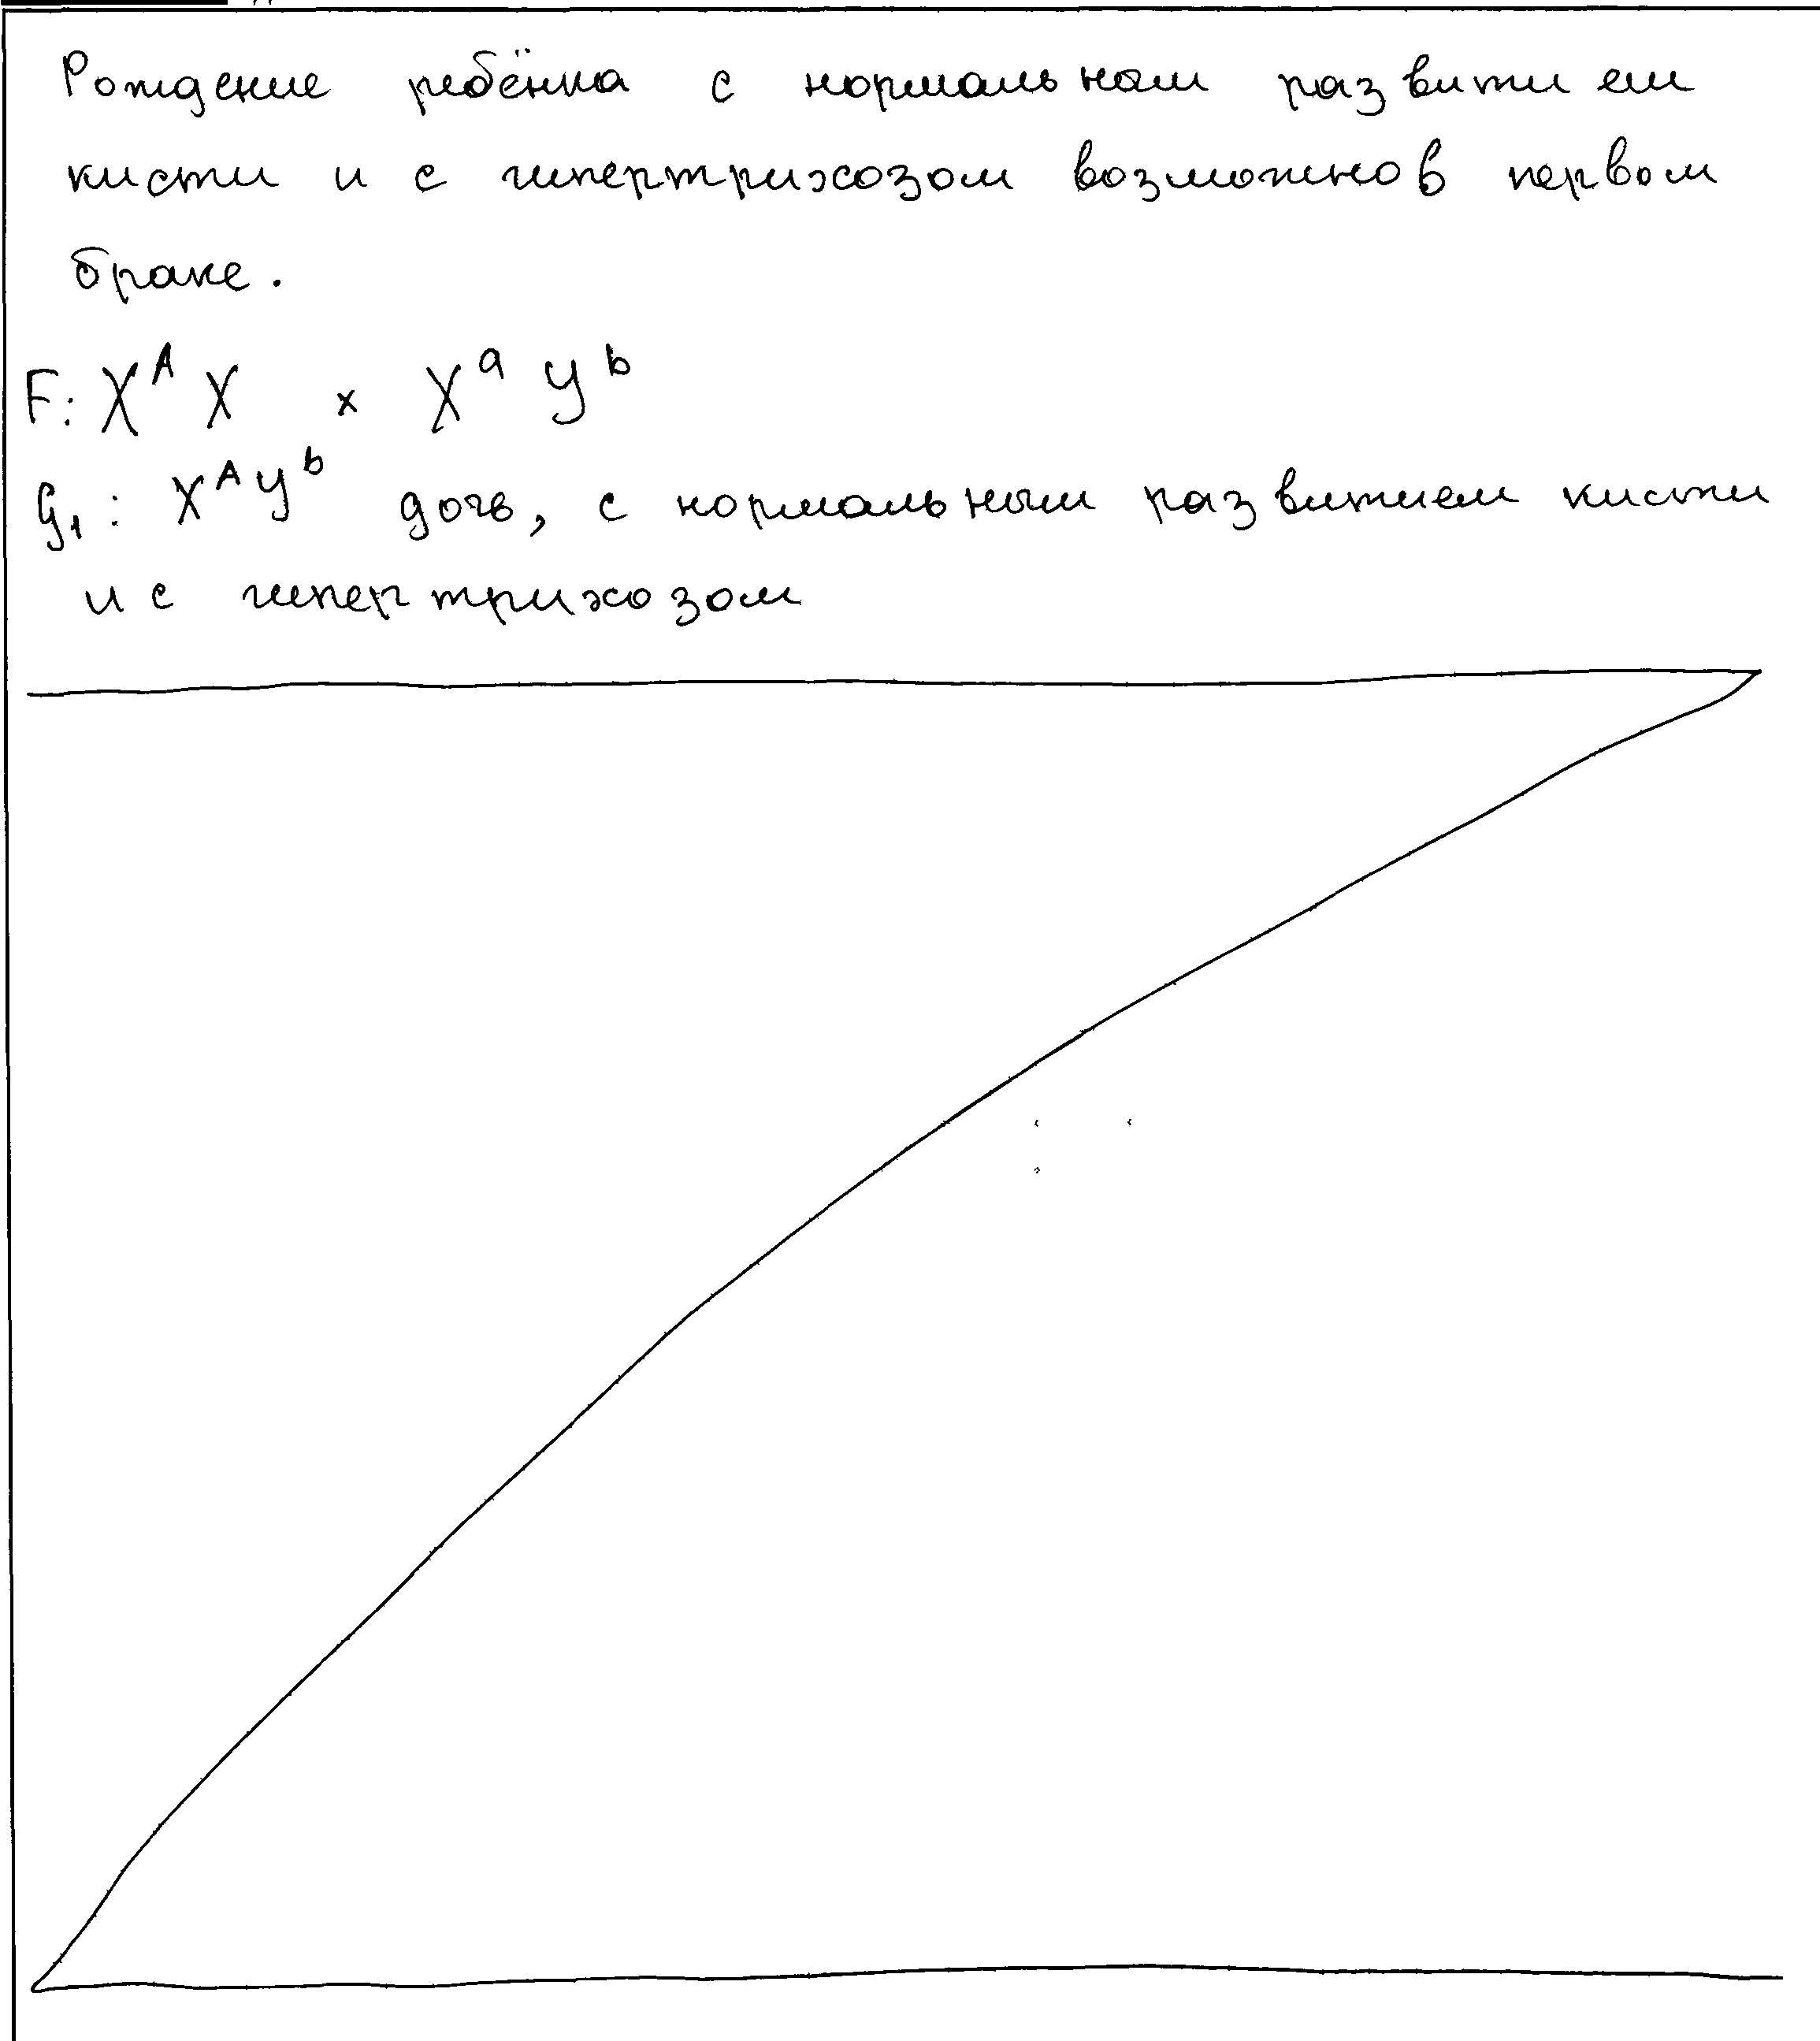 Рождение ребёнка с нормальным развитием
кисти и с гипертрихозом возможно в первом
браке.
F: X^A X × X^a y^b
G₁: X^A y^b дочь, с нормальным развитием кисти
и с гипертрихозом